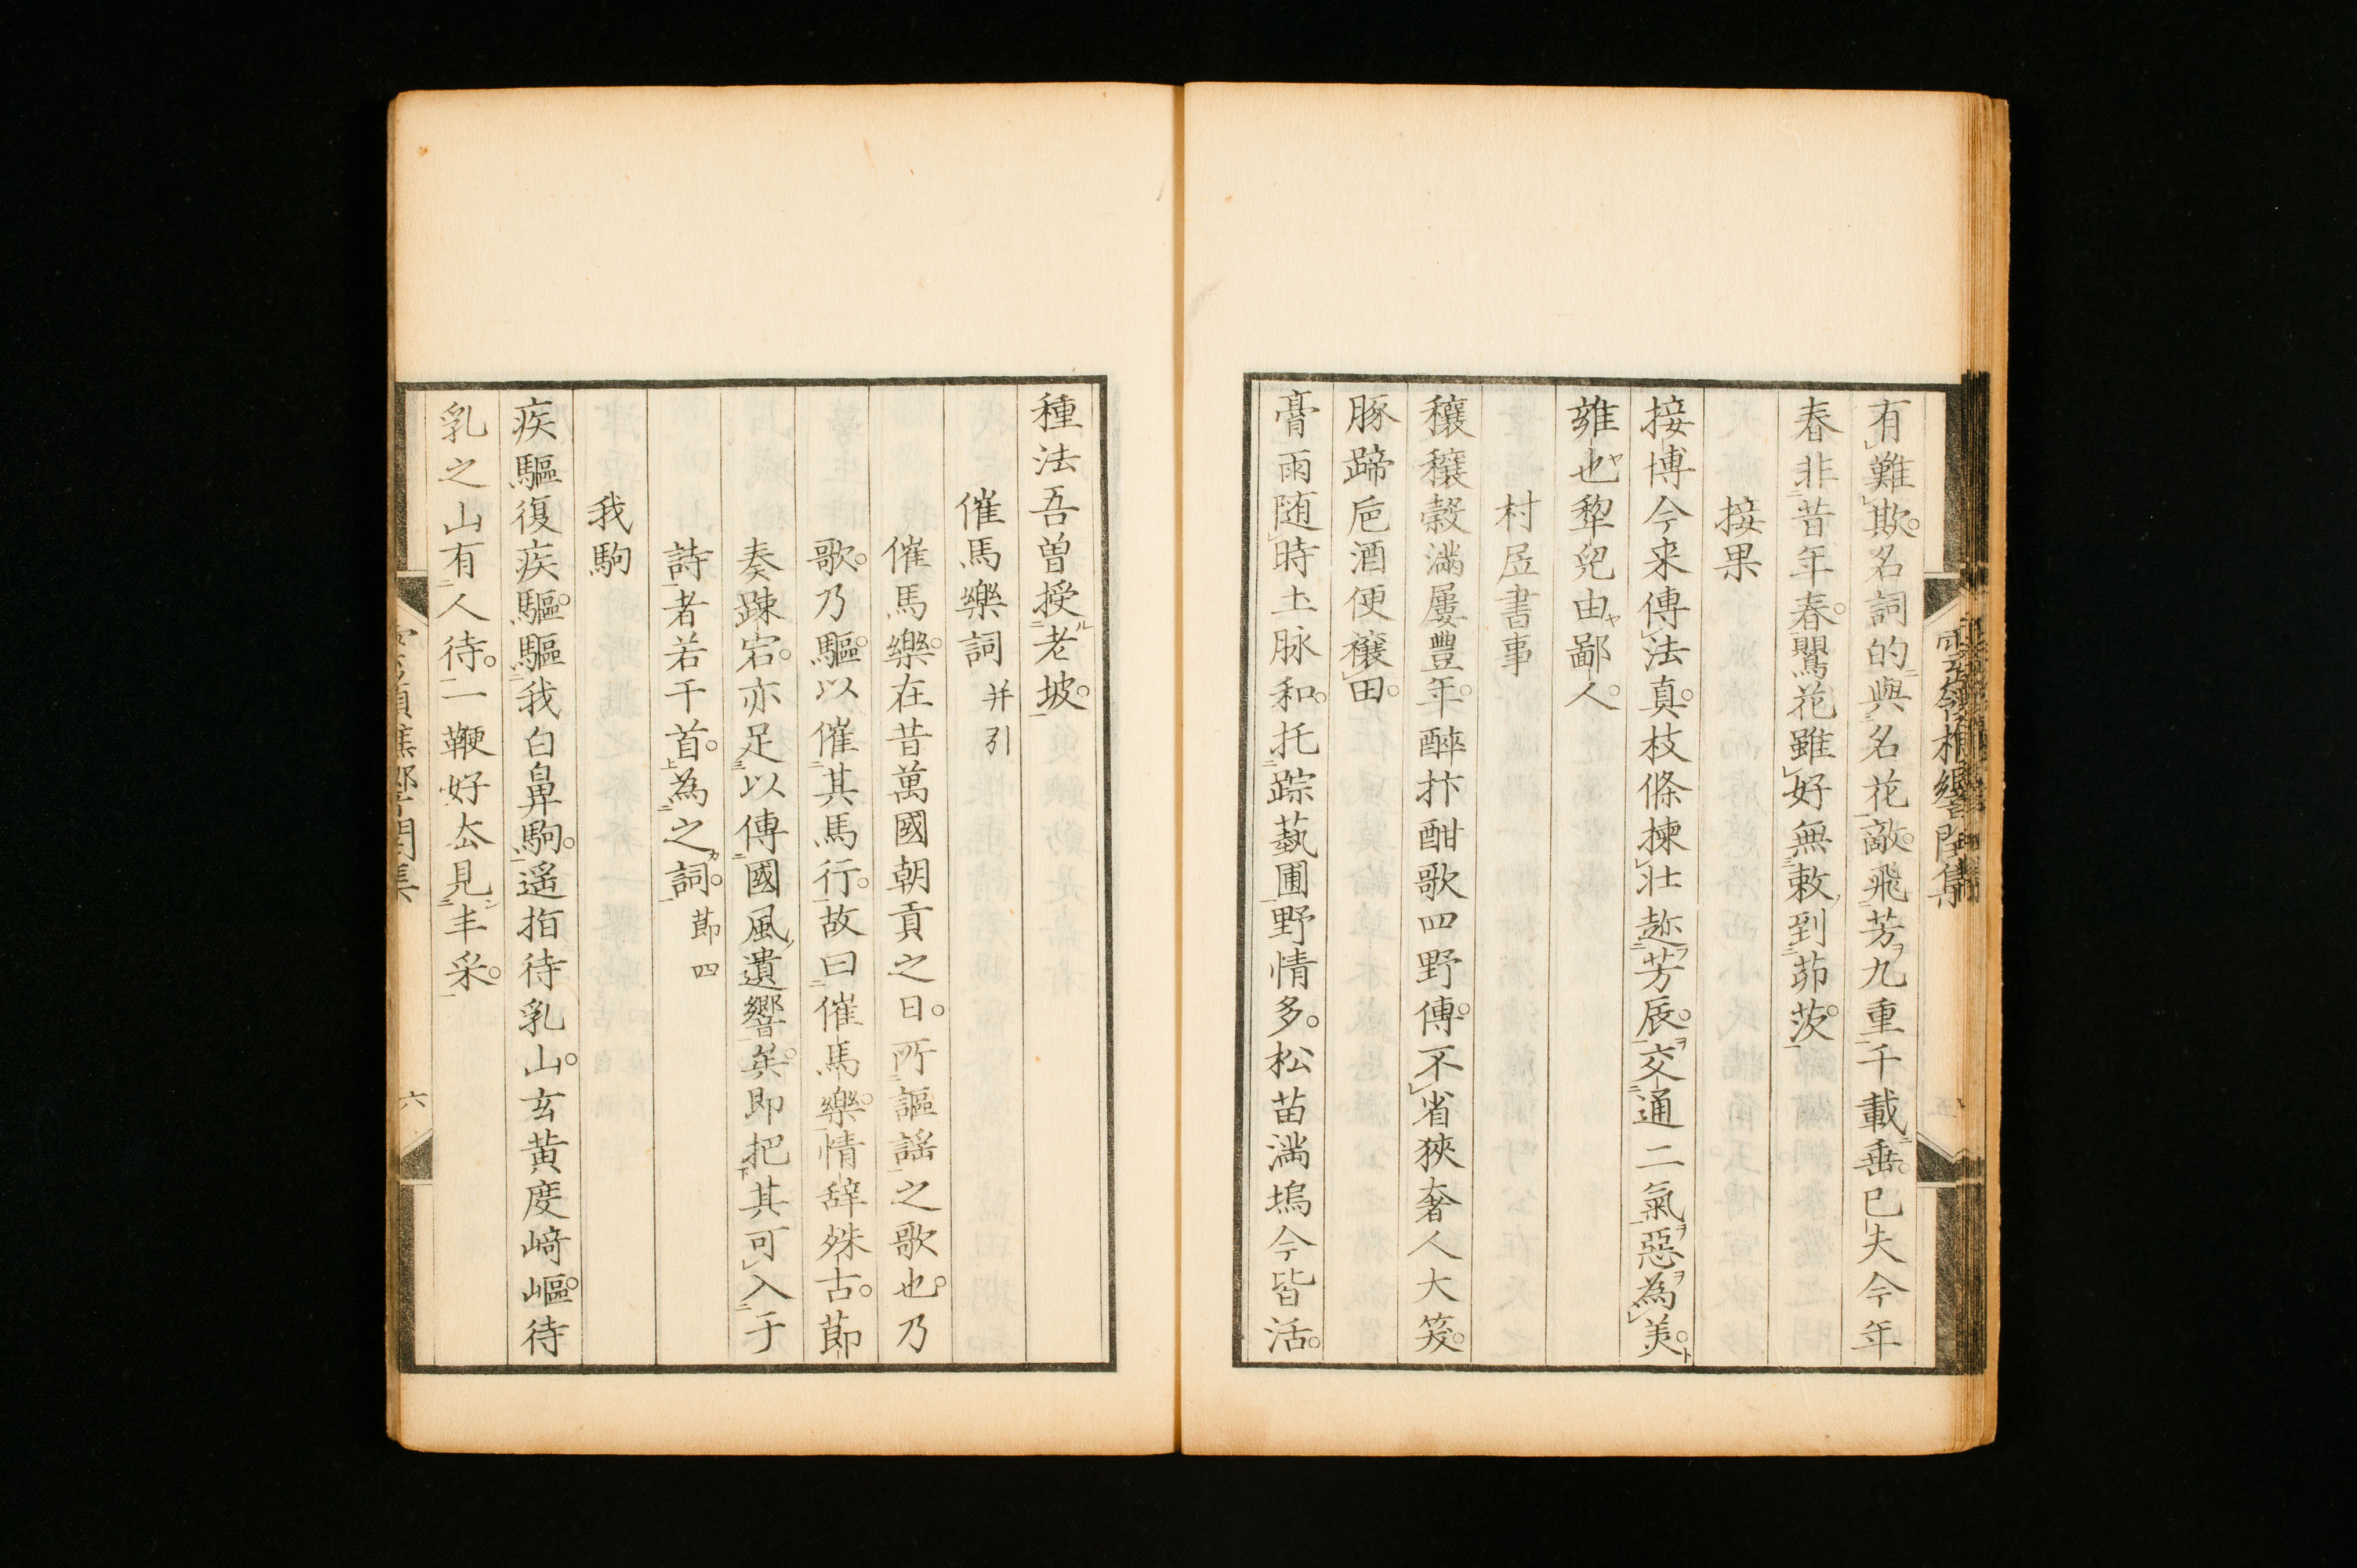 有難欺。名詞的與名花敵。飛芳九重千載垂。已夫今年
春非昔年春。鸎花雖好無敕到茆茨。
接果
接博今来傳法真。枝條揀壮趂芳辰。交通二氣惡為美。
雍也犂兒由鄙人。
村居書事
穰穰穀満屢豊年。年醉抃酣歌四野傳。不省狹奢人大笑。
豚蹄巵酒便穣田。
膏雨随時土脉和。托踪藝圃野情多。松苗満塢今皆活。
種法吾曽授老坡。
催馬樂詞 并引
催馬樂。在昔萬國朝貢之日。所謳謡之歌也。乃
歌。乃驅。以催其馬行。故曰催馬樂。情辞殊古。莭
奏踈宕。亦足以傳國風遺響矣。即把其可入于
詩者若干首。為之詞。莭四
我駒
疾驅復疾驅。驅我白鼻駒。遥指待乳山。玄黄度﨑嶇。待
乳之山有人待。一鞭好厺見丰采。
六